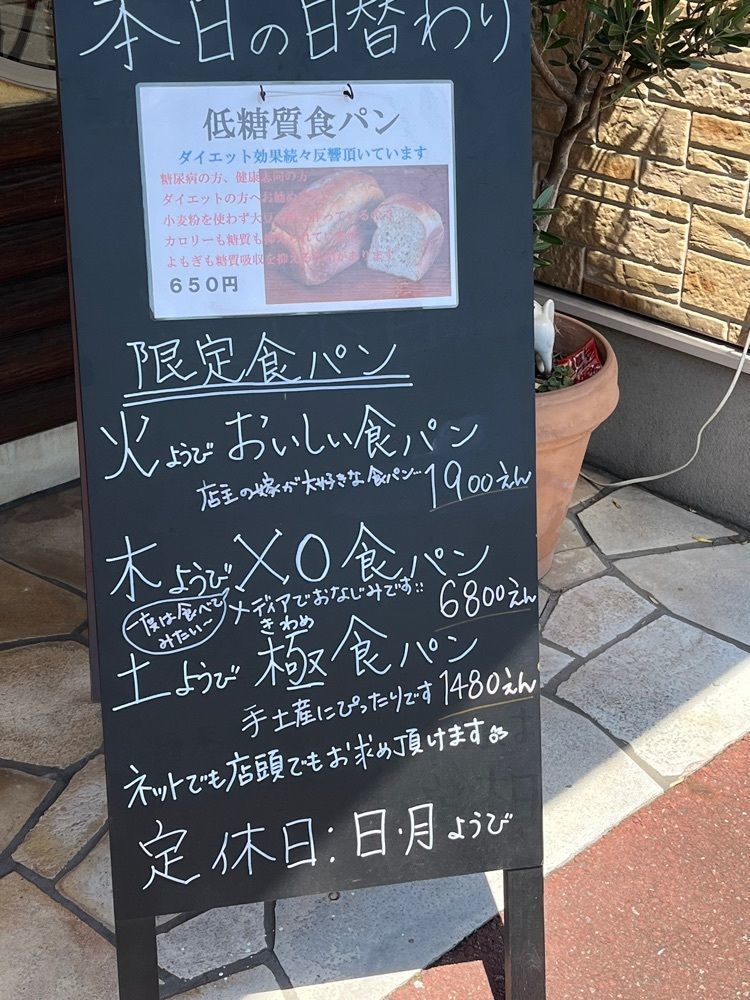 本日の日替わり
低糖質食パン
ダイエット効果続々反響頂いています
糖尿病の方、健康志向の方
ダイエットの方へお勧め
小麦粉を使わず大豆
カロリーも糖質も
よもぎも糖質吸収を抑える
650円
限定食パン
火ようび おいしい食パン
店主の嫁が大好きな食パン… 1900えん
木ようび XO食パン
一度は食べてみたい〜
メディアでおなじみです:: 6800えん
きわめ
土ようび 極食パン
手土産にぴったりです 1480えん
ネットでも店頭でもお求め頂けます
定休日:日・月ようび